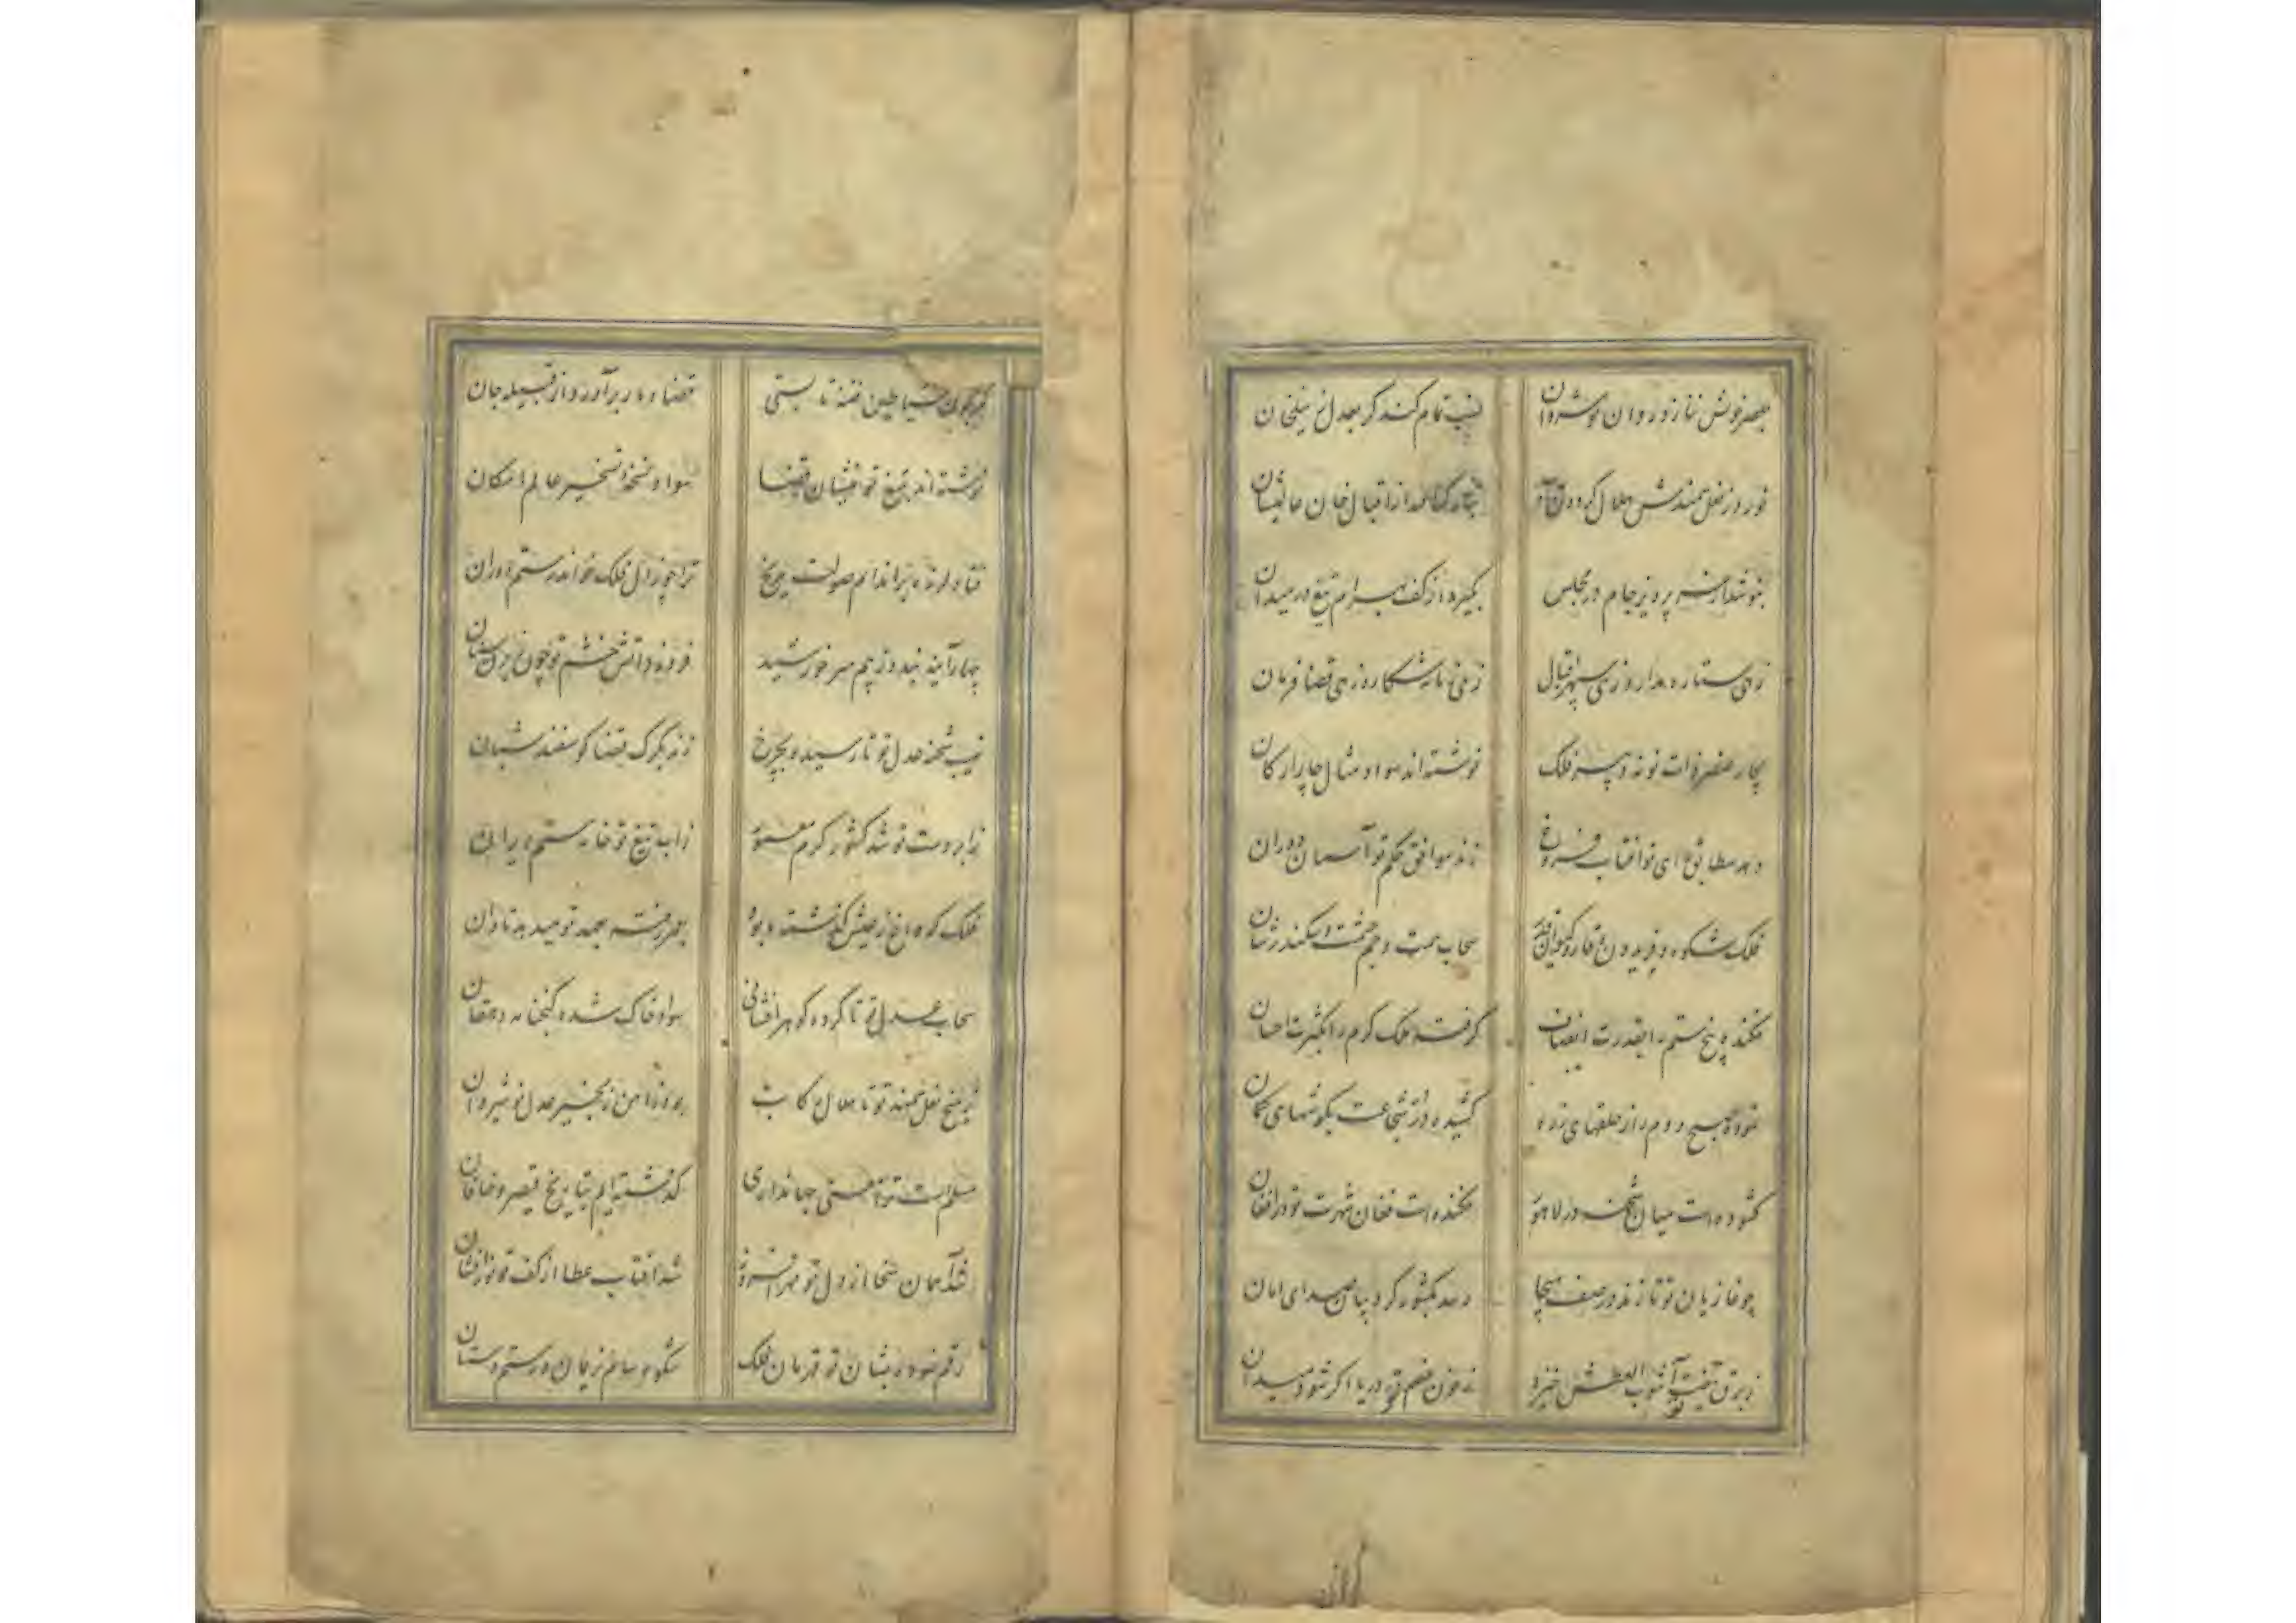 بعصر خویش ننازد روان نوشیروان نسب تمام کند گر بعدل
خورد ز نعل سمندش هلال گردون از اقبال خان عالیشان
بنوشد از پرویز جام در مجلس بگیرد از کف بهرام تیغ در میدان
زهی ستاره مدار و زهی سپهر اقبال زهی زمانه شکار و زهی قضا فرمان
چار عنصر ذات تو نه سپهر فلک نوشته‌اند سواد مثال چار ارکان
دهد مطابق رای تو آفتاب فروغ زند موافق حکم تو آسمان دوران
فلک شکوه و فریدون وقار و کیوان قدر سحاب همت و جم حشمت و سکندر شان
فکنده پنجه ستم را بقدرت انصاف گرفته ملک کرم را بکثرت احسان
نموده صبح دوم را ز حلقهای زره کشیده از شجاعت بگوشهای کمان
گشوده است میان در لاهور فکنده است فغان شهرت تو در افغان
چو غازیان تو تازند در صف هیجا رسد بکشور گردونیان صدای امان
ز برق تیغ تو آشوب العطش خیزد ز خون خصم تو دریا اگر شود میدان
کران
شیاطین فتنه تا بستی قضا دمار برآورد از قبیله جان
نوشته‌اند بتیغ تو منشیان قضا سواد نسخه تسخیر عالم امکان
فتاد لرزه بر اندام صولت مریخ ترا چو زال فلک خواند رستم دوران
چهار آینه بندد ز بیم سر خورشید فروزد آتش خشم تو چون سنان
نهیب شحنه عدل تو تا رسید بچرخ زند بگرگ قضا گوسفند شبان
ز ابر دست تو شد کشور کرم معمور ز آب تیغ تو خانه ستم ویران
فلک که داغ ز عیش گذشته بود بعهد تو میدهد تاوان
سحاب عدل تو تا کرده گوهرافشانی سواد خاک شده گنجخانه دهقان
نعل سمند تو تا هلال رکاب ز زنجیر عدل نوشیروان
مسلم است ترا جهانداری گذشته‌ایم بتاریخ قیصر و خاقان
شد آسمان سخا از دل تو مهر افروز شد آفتاب عطا از کف تو نورافشان
رقم نموده بشان تو قهرمان فلک شکوه سام نریمان و رستم دستان